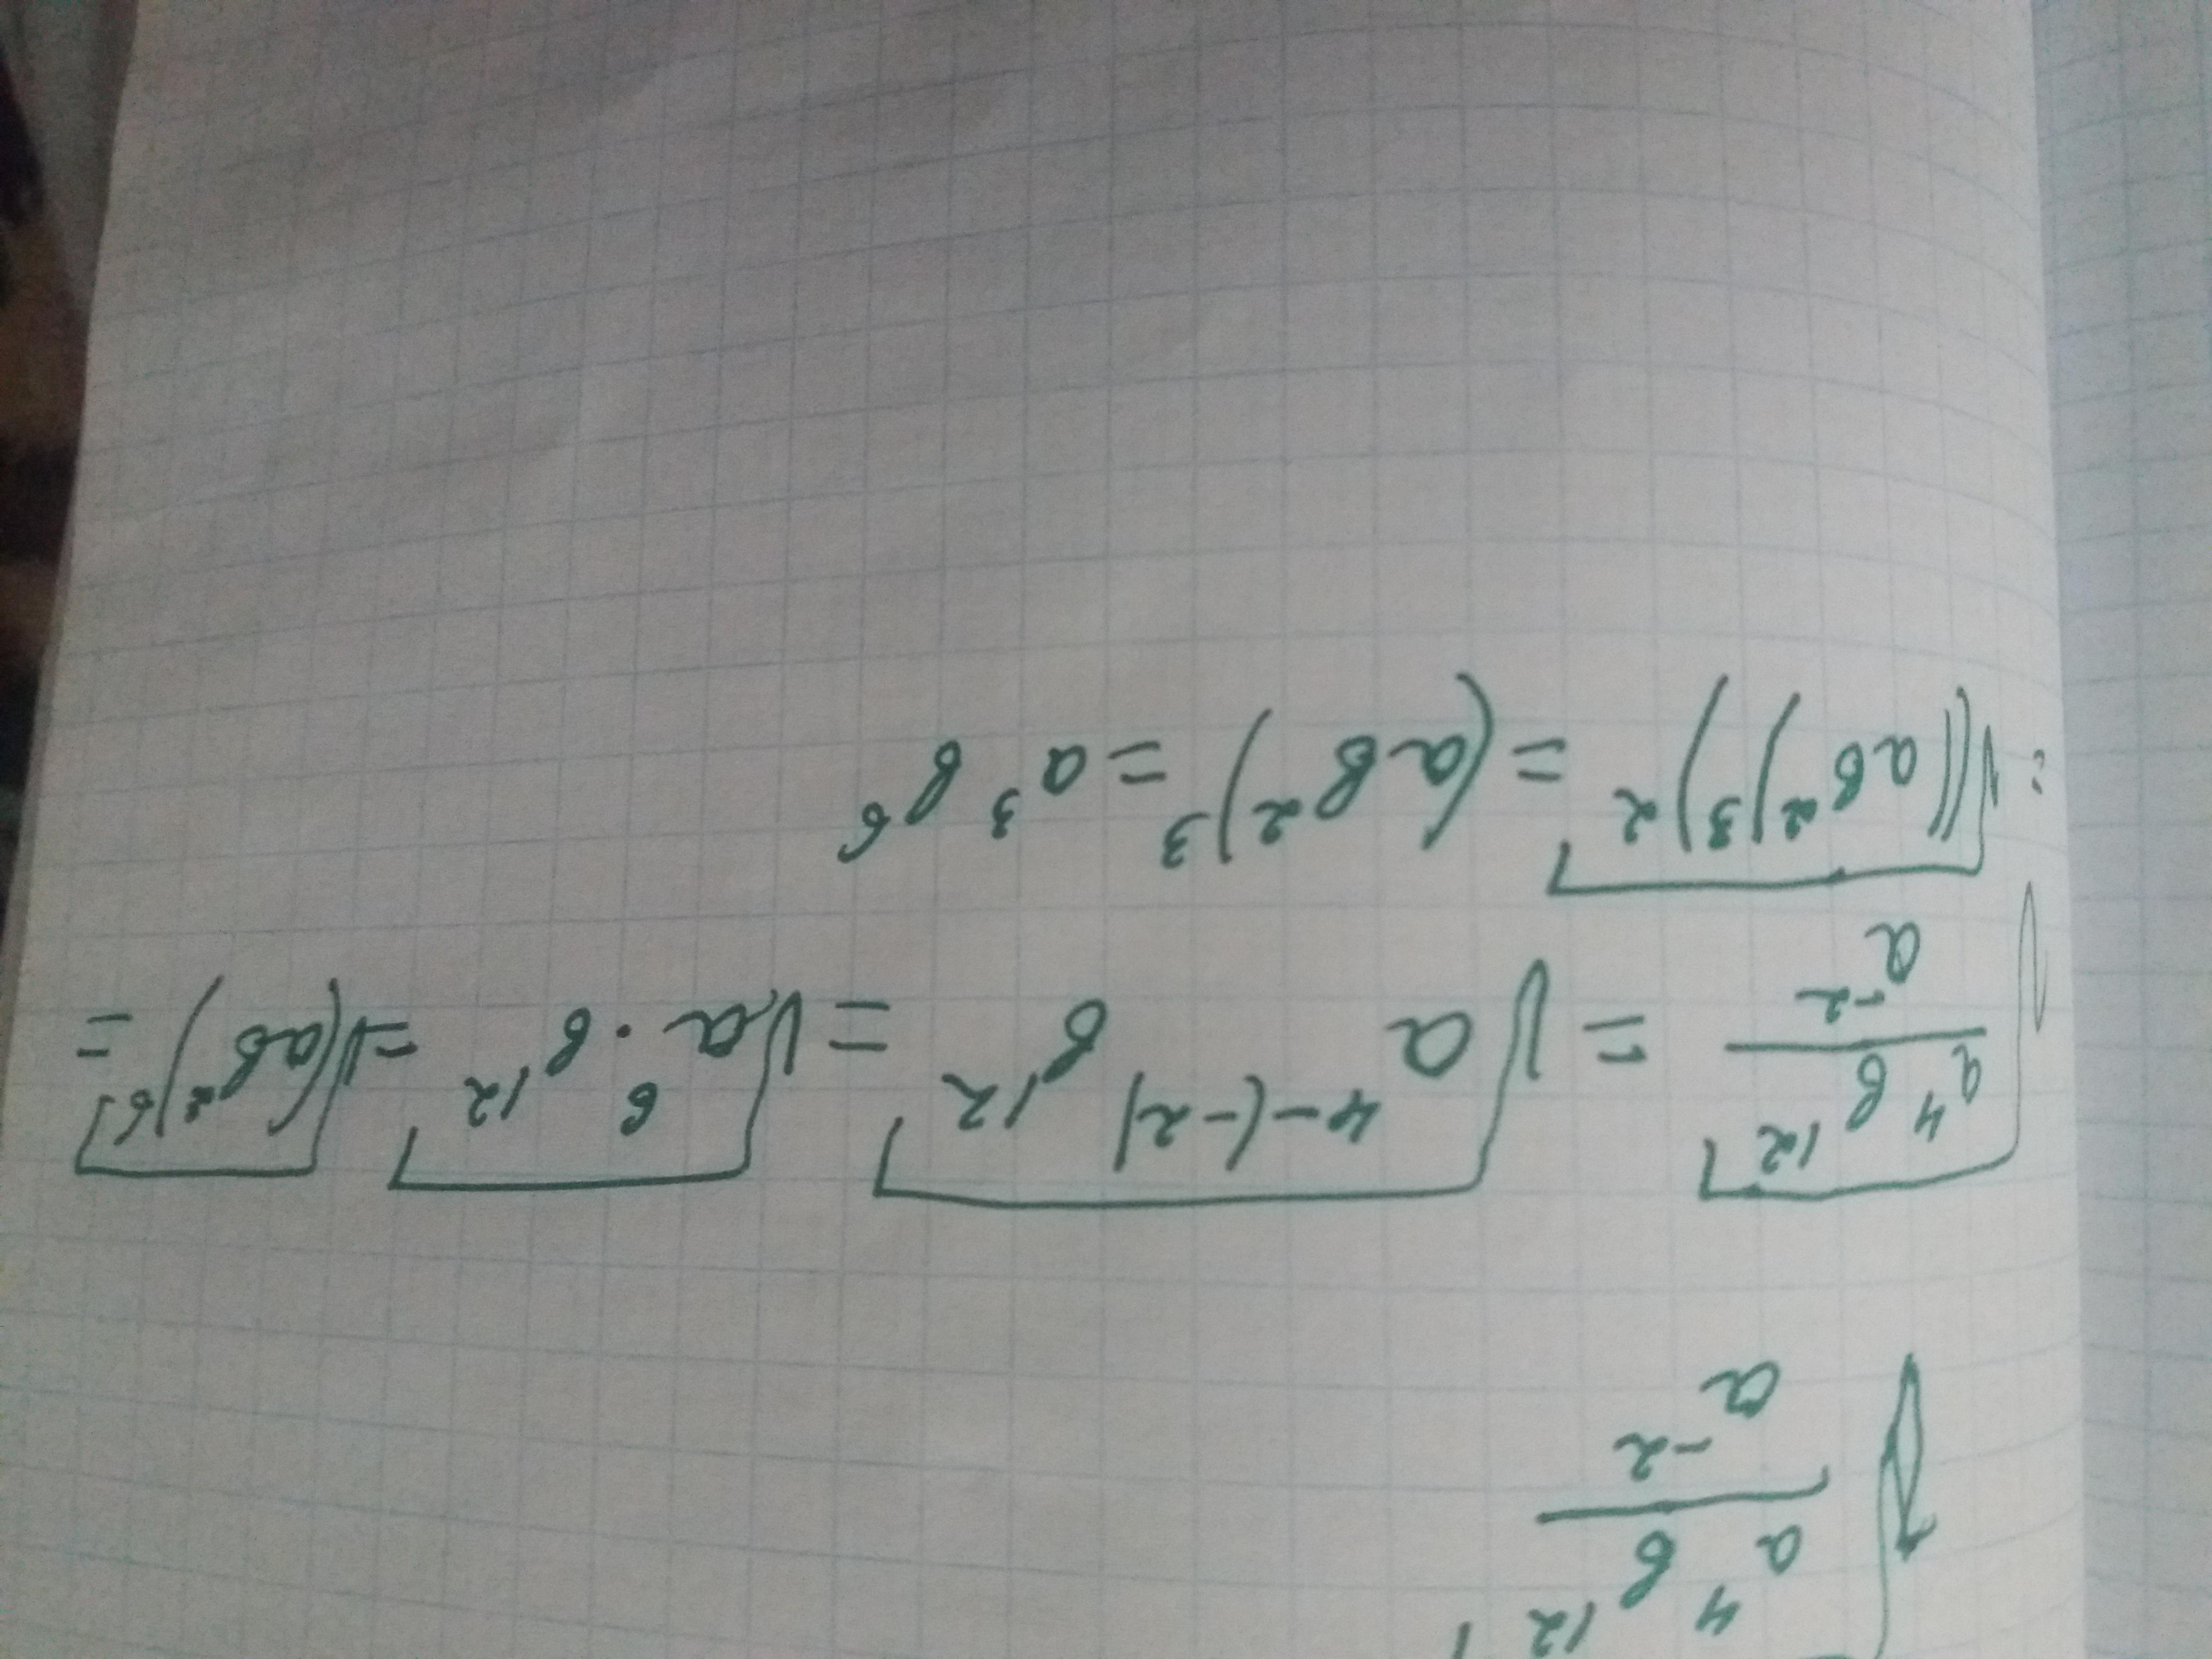 √(a⁴b¹² / a⁻²)
√(a⁴b¹² / a⁻²) = √(a⁴⁻⁽⁻²⁾ b¹²) = √(a⁶ · b¹²) = √((ab²)⁶) =
= √(((ab²)³)²) = (ab²)³ = a³ b⁶